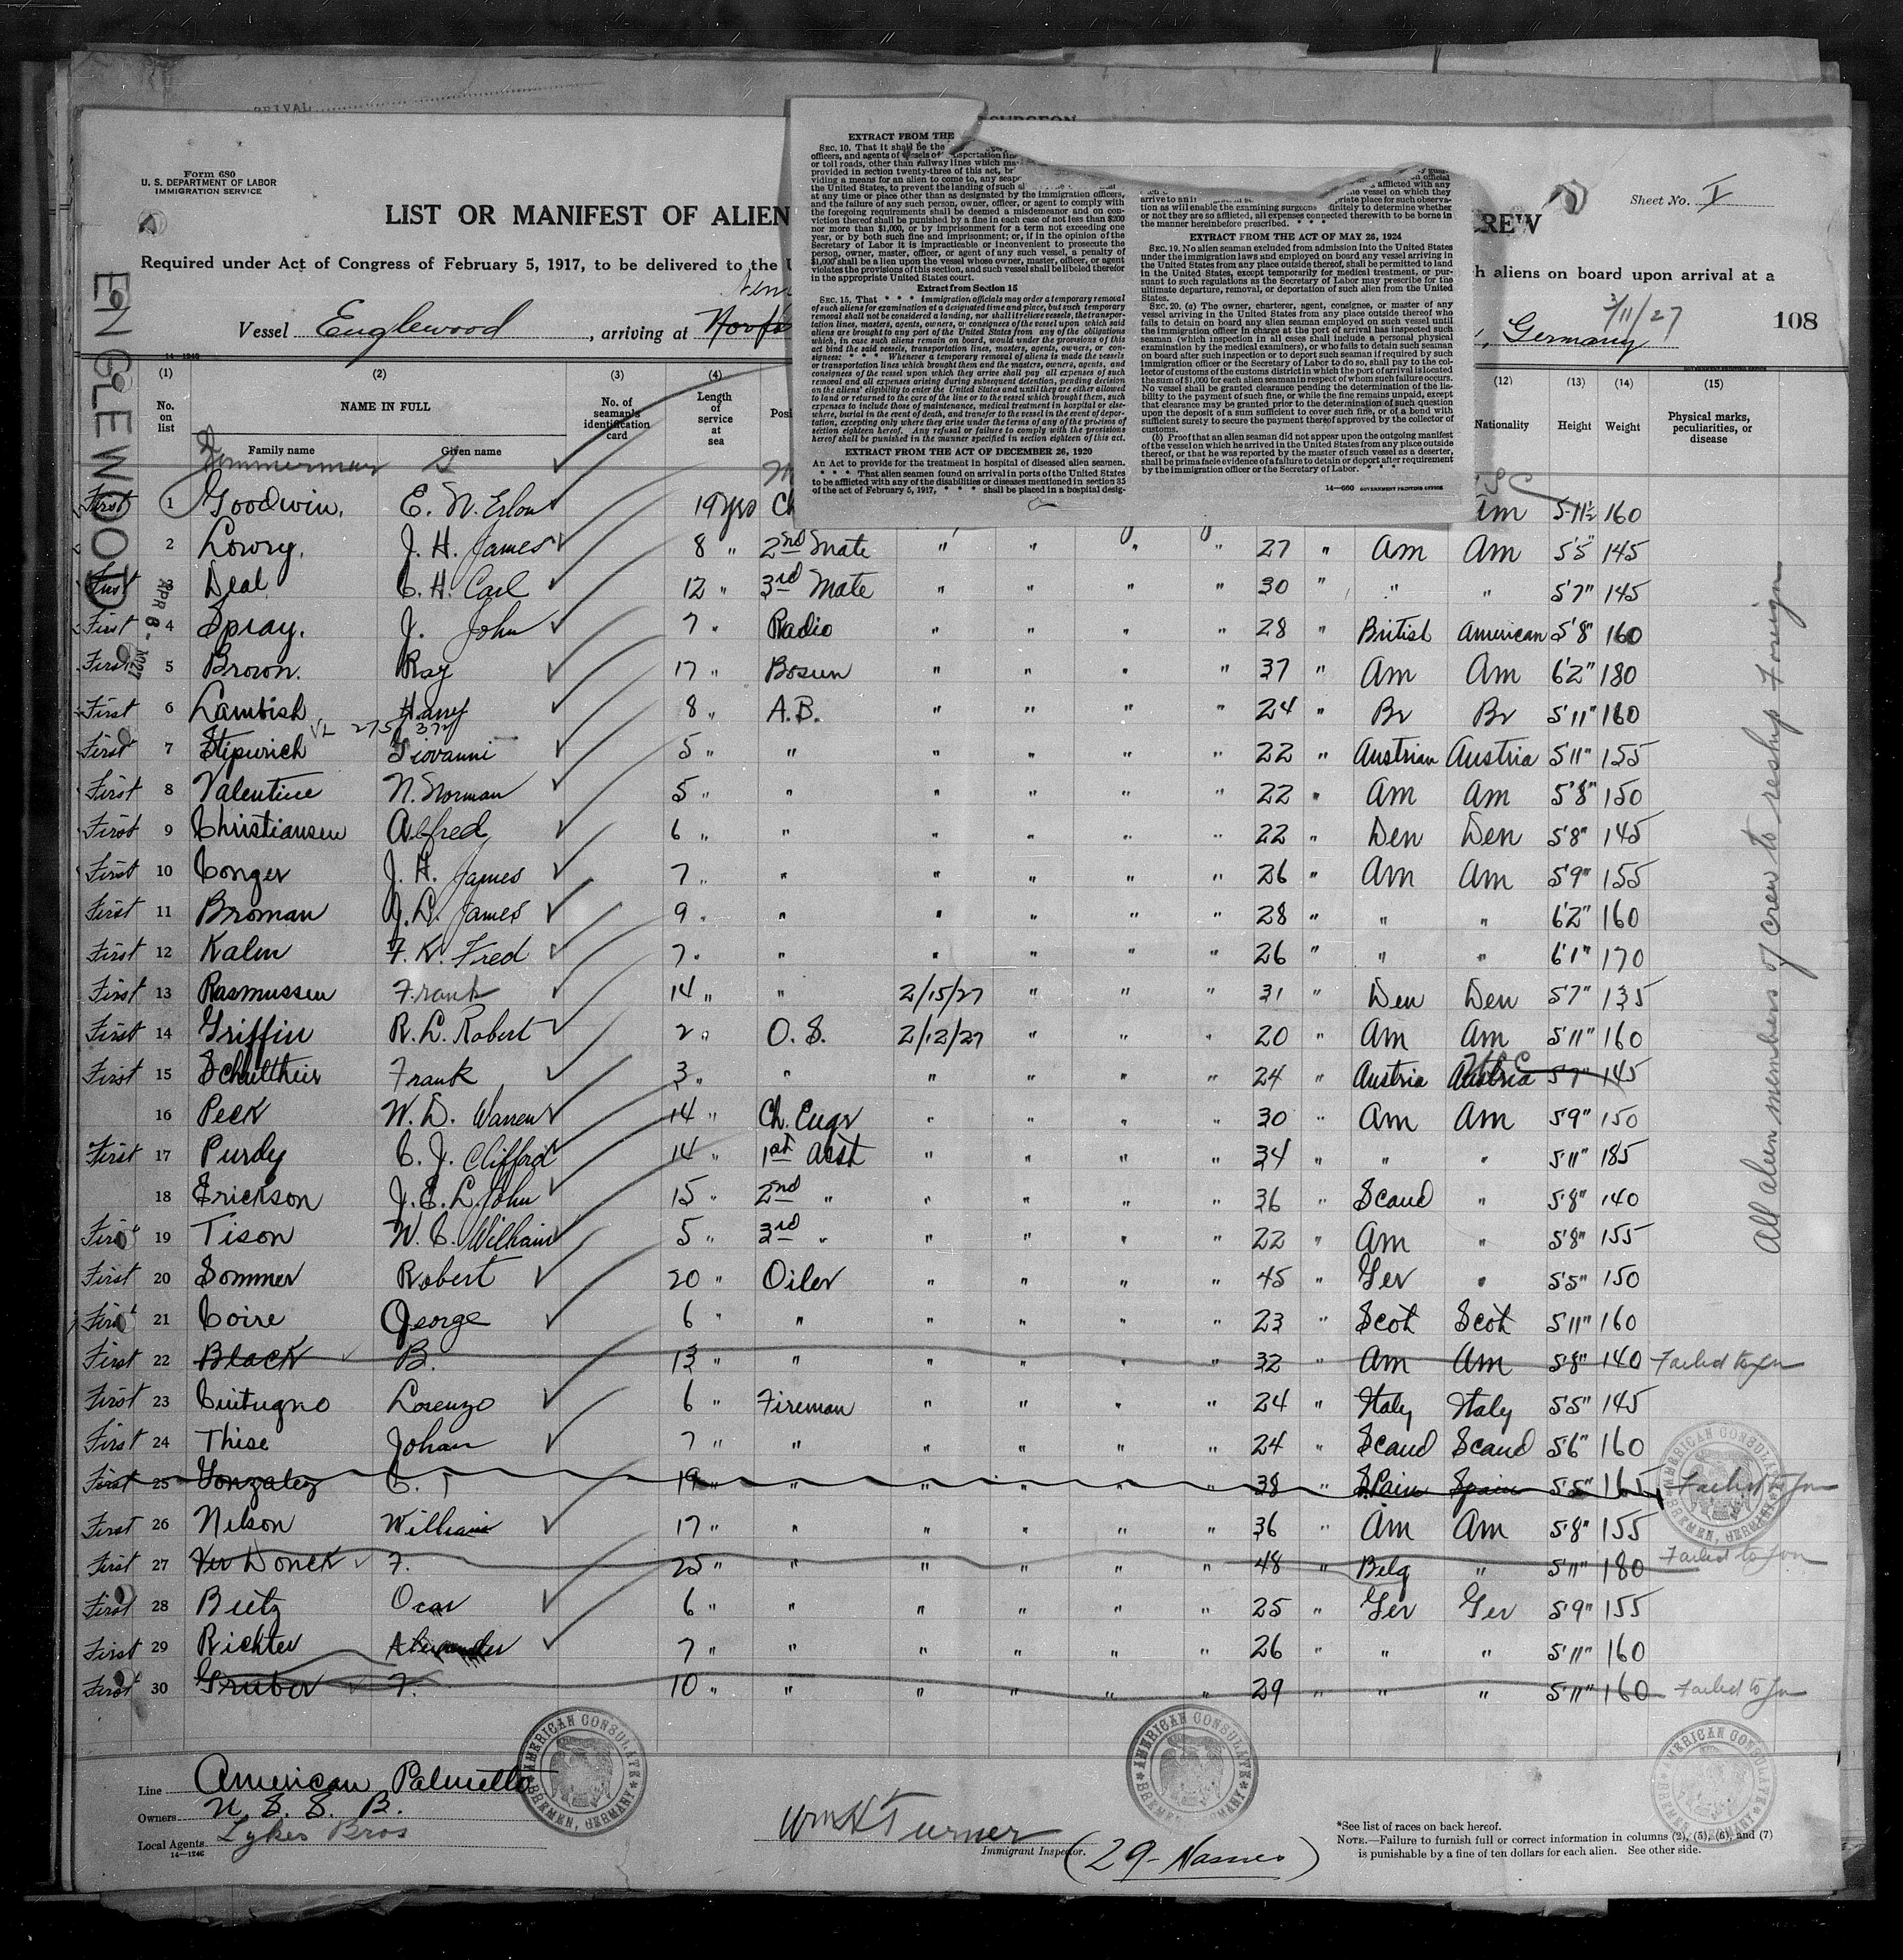 Form 680
U. S. DEPARTMENT OF LABOR
IMMIGRATION SERVICE
Sheet No. I
LIST OR MANIFEST OF ALIEN CREW
Required under Act of Congress of February 5, 1917, to be delivered to the U h aliens on board upon arrival at a
Vessel Englewood, arriving at , Germany 3/11/27 108
ENGLEWOOD
APR 8 - 1927
EXTRACT FROM THE
SEC. 10. That it shall be the
officers, and agents of vessels or
or toll roads, other than railway lines which
provided in section twenty-three of this act,
viding a means for an alien to come to, any
the United States, to prevent the landing of such
at any time or place other than as designated by the immigration officers,
and the failure of any such person, owner, officer, or agent to comply with
the foregoing requirements shall be deemed a misdemeanor and on con-
viction thereof shall be punished by a fine in each case of not less than $200
nor more than $1,000, or by imprisonment for a term not exceeding one
year, or by both such fine and imprisonment; or, if in the opinion of the
Secretary of Labor it is impracticable or inconvenient to prosecute the
person, owner, master, officer, or agent of any such vessel, a penalty of
$1,000 shall be a lien upon the vessel whose owner, master, officer, or agent
violates the provisions of this section, and such vessel shall be libeled therefor
in the appropriate United States court.
Extract from Section 15
SEC. 15. That * * * immigration officials may order a temporary removal
of such aliens for examination at a designated time and place, but such temporary
removal shall not be considered a landing, nor shall it relieve vessels, the transpor-
tation lines, masters, agents, owners, or consignees of the vessel upon which said
aliens are brought to any port of the United States from any of the obligations
which, in case such aliens remain on board, would under the provisions of this
act bind the said vessels, transportation lines, masters, agents, owners, or con-
signees: * * * Whenever a temporary removal of aliens is made the vessels
or transportation lines which brought them and the masters, owners, agents, and
consignees of the vessel upon which they arrive shall pay all expenses of such
removal and all expenses arising during subsequent detention, pending decision
on the aliens' eligibility to enter the United States and until they are either allowed
to land or returned to the care of the line or to the vessel which brought them, such
expenses to include those of maintenance, medical treatment in hospital or else-
where, burial in the event of death, and transfer to the vessel in the event of depor-
tation, excepting only where they arise under the terms of any of the provisos of
section eighteen hereof. Any refusal or failure to comply with the provisions
hereof shall be punished in the manner specified in section eighteen of this act.
EXTRACT FROM THE ACT OF DECEMBER 26, 1920
An Act to provide for the treatment in hospital of diseased alien seamen.
* * * That alien seamen found on arrival in ports of the United States
to be afflicted with any of the disabilities or diseases mentioned in section 35
of the act of February 5, 1917, * * * shall be placed in a hospital desig-
official
afflicted with any
the vessel on which they
arrive to an priate place for such observa-
tion as will enable the examining surgeons finitely to determine whether
or not they are so afflicted, all expenses connected therewith to be borne in
the manner hereinbefore prescribed.
EXTRACT FROM THE ACT OF MAY 26, 1924
SEC. 19. No alien seaman excluded from admission into the United States
under the immigration laws and employed on board any vessel arriving in
the United States from any place outside thereof, shall be permitted to land
in the United States, except temporarily for medical treatment, or pur-
suant to such regulations as the Secretary of Labor may prescribe for the
ultimate departure, removal, or deportation of such alien from the United
States.
SEC. 20. (a) The owner, charterer, agent, consignee, or master of any
vessel arriving in the United States from any place outside thereof who
fails to detain on board any alien seaman employed on such vessel until
the immigration officer in charge at the port of arrival has inspected such
seaman (which inspection in all cases shall include a personal physical
examination by the medical examiners), or who fails to detain such seaman
on board after such inspection or to deport such seaman if required by such
immigration officer or the Secretary of Labor to do so, shall pay to the col-
lector of customs of the customs district in which the port of arrival is located
the sum of $1,000 for each alien seaman in respect of whom such failure occurs.
No vessel shall be granted clearance pending the determination of the lia-
bility to the payment of such fine, or while the fine remains unpaid, except
that clearance may be granted prior to the determination of such question
upon the deposit of a sum sufficient to cover such fine, or of a bond with
sufficient surety to secure the payment thereof approved by the collector of
customs.
(b) Proof that an alien seaman did not appear upon the outgoing manifest
of the vessel on which he arrived in the United States from any place outside
thereof, or that he was reported by the master of such vessel as a deserter,
shall be prima facie evidence of a failure to detain or deport after requirement
by the immigration officer or the Secretary of Labor. * * *
14—660 GOVERNMENT PRINTING OFFICE
(1) (2) (3) (4) (12) (13) (14) (15)
No. on list NAME IN FULL Family name Given name No. of seaman's identification card Length of service at sea Posi Nationality Height Weight Physical marks, peculiarities, or disease
Zimmerman
First 1 Goodwin, E. N. Erlon 19 yrs Ch Am 5-11½ 160
2 Lowry, J. H. James 8 " 2nd Mate " " " " 27 " Am Am 5'5" 145
First 3 Deal C. H. Carl 12 " 3rd Mate " " " " 30 " " " 5'7" 145
First 4 Spray. J. John 7 " Radio " " " " 28 " British American 5'8" 160
First 5 Brown. Ray 17 " Bosun " " " " 37 " Am Am 6'2" 180
First 6 Lambish Harry 8 " A.B. " " " " 24 " Br Br 5'11" 160
First 7 Stipurich Giovanni 5 " " " " " 22 " Austrian Austria 5'11" 155
First 8 Valentine N. Norman 5 " " " " " " 22 " Am Am 5'8" 150
First 9 Christiansen Alfred 6 " " " " " " 22 " Den Den 5'8" 145
First 10 Conger J. H. James 7 " " " " " " 26 " Am Am 5'9" 155
First 11 Broman J. L. James 9 " " " " " " 28 " " " 6'2" 160
First 12 Kalen F. K. Fred 7 " " " " " " 26 " " " 6'1" 170
First 13 Rasmussen Frank 14 " " 2/15/27 " " " 31 " Den Den 5'7" 135
First 14 Griffin R. L. Robert 2 " O. S. 2/12/27 " " " 20 " Am Am 5'11" 160
First 15 Schultheis Frank 3 " " " " " " 24 " Austria Austria 5'7" 145
16 Peck W. D. Warren 14 " Ch. Engr " " " " 30 " Am Am 5'9" 150
First 17 Purdy C. J. Clifford 14 " 1st Asst " " " " 34 " " " 5'11" 185
18 Erickson J. E. L. John 15 " 2nd " " " " " 36 " Scand " 5'8" 140
First 19 Tison W. C. William 5 " 3rd " " " " " 22 " Am " 5'8" 155
First 20 Sommer Robert 20 " Oiler " " " " 45 " Ger " 5'5" 150
First 21 Coire George 6 " " " " " " 23 " Scot Scot 5'11" 160
First 22 Black B. 13 " " " " " " 32 " Am Am 5'8" 140 Failed to join
First 23 Cuitugno Lorenzo 6 " Fireman " " " " 24 " Italy Italy 5'5" 145
First 24 Thise Johan 7 " " " " " " 24 " Scand Scand 5'6" 160
First 25 Gonzalez C. 19 " " " " " " 38 " Spain Spain 5'5" 165 Failed to join
First 26 Nelson William 17 " " " " " " 36 " Am Am 5'8" 155
First 27 Ver Donck F. 25 " " " " " " 48 " Belg " 5'11" 180 Failed to join
First 28 Bietz Oscar 6 " " " " " " 25 " Ger Ger 5'9" 155
First 29 Richter Alexander 7 " " " " " " 26 " " " 5'11" 160
First 30 Gruber F. 10 " " " " " " 29 " " " 5'11" 160 Failed to join
All alien members of crew to reship foreign
AMERICAN CONSULATE BREMEN, GERMANY
AMERICAN CONSULATE BREMEN, GERMANY
AMERICAN CONSULATE BREMEN, GERMANY
AMERICAN CONSULATE BREMEN, GERMANY
Line American Palmetto
Owners U. S. S. B.
Local Agents Lykes Bros
14—1246
Wm H Turner
Immigrant Inspector.
(29-Names)
*See list of races on back hereof.
NOTE.—Failure to furnish full or correct information in columns (2), (5), (6), and (7)
is punishable by a fine of ten dollars for each alien. See other side.